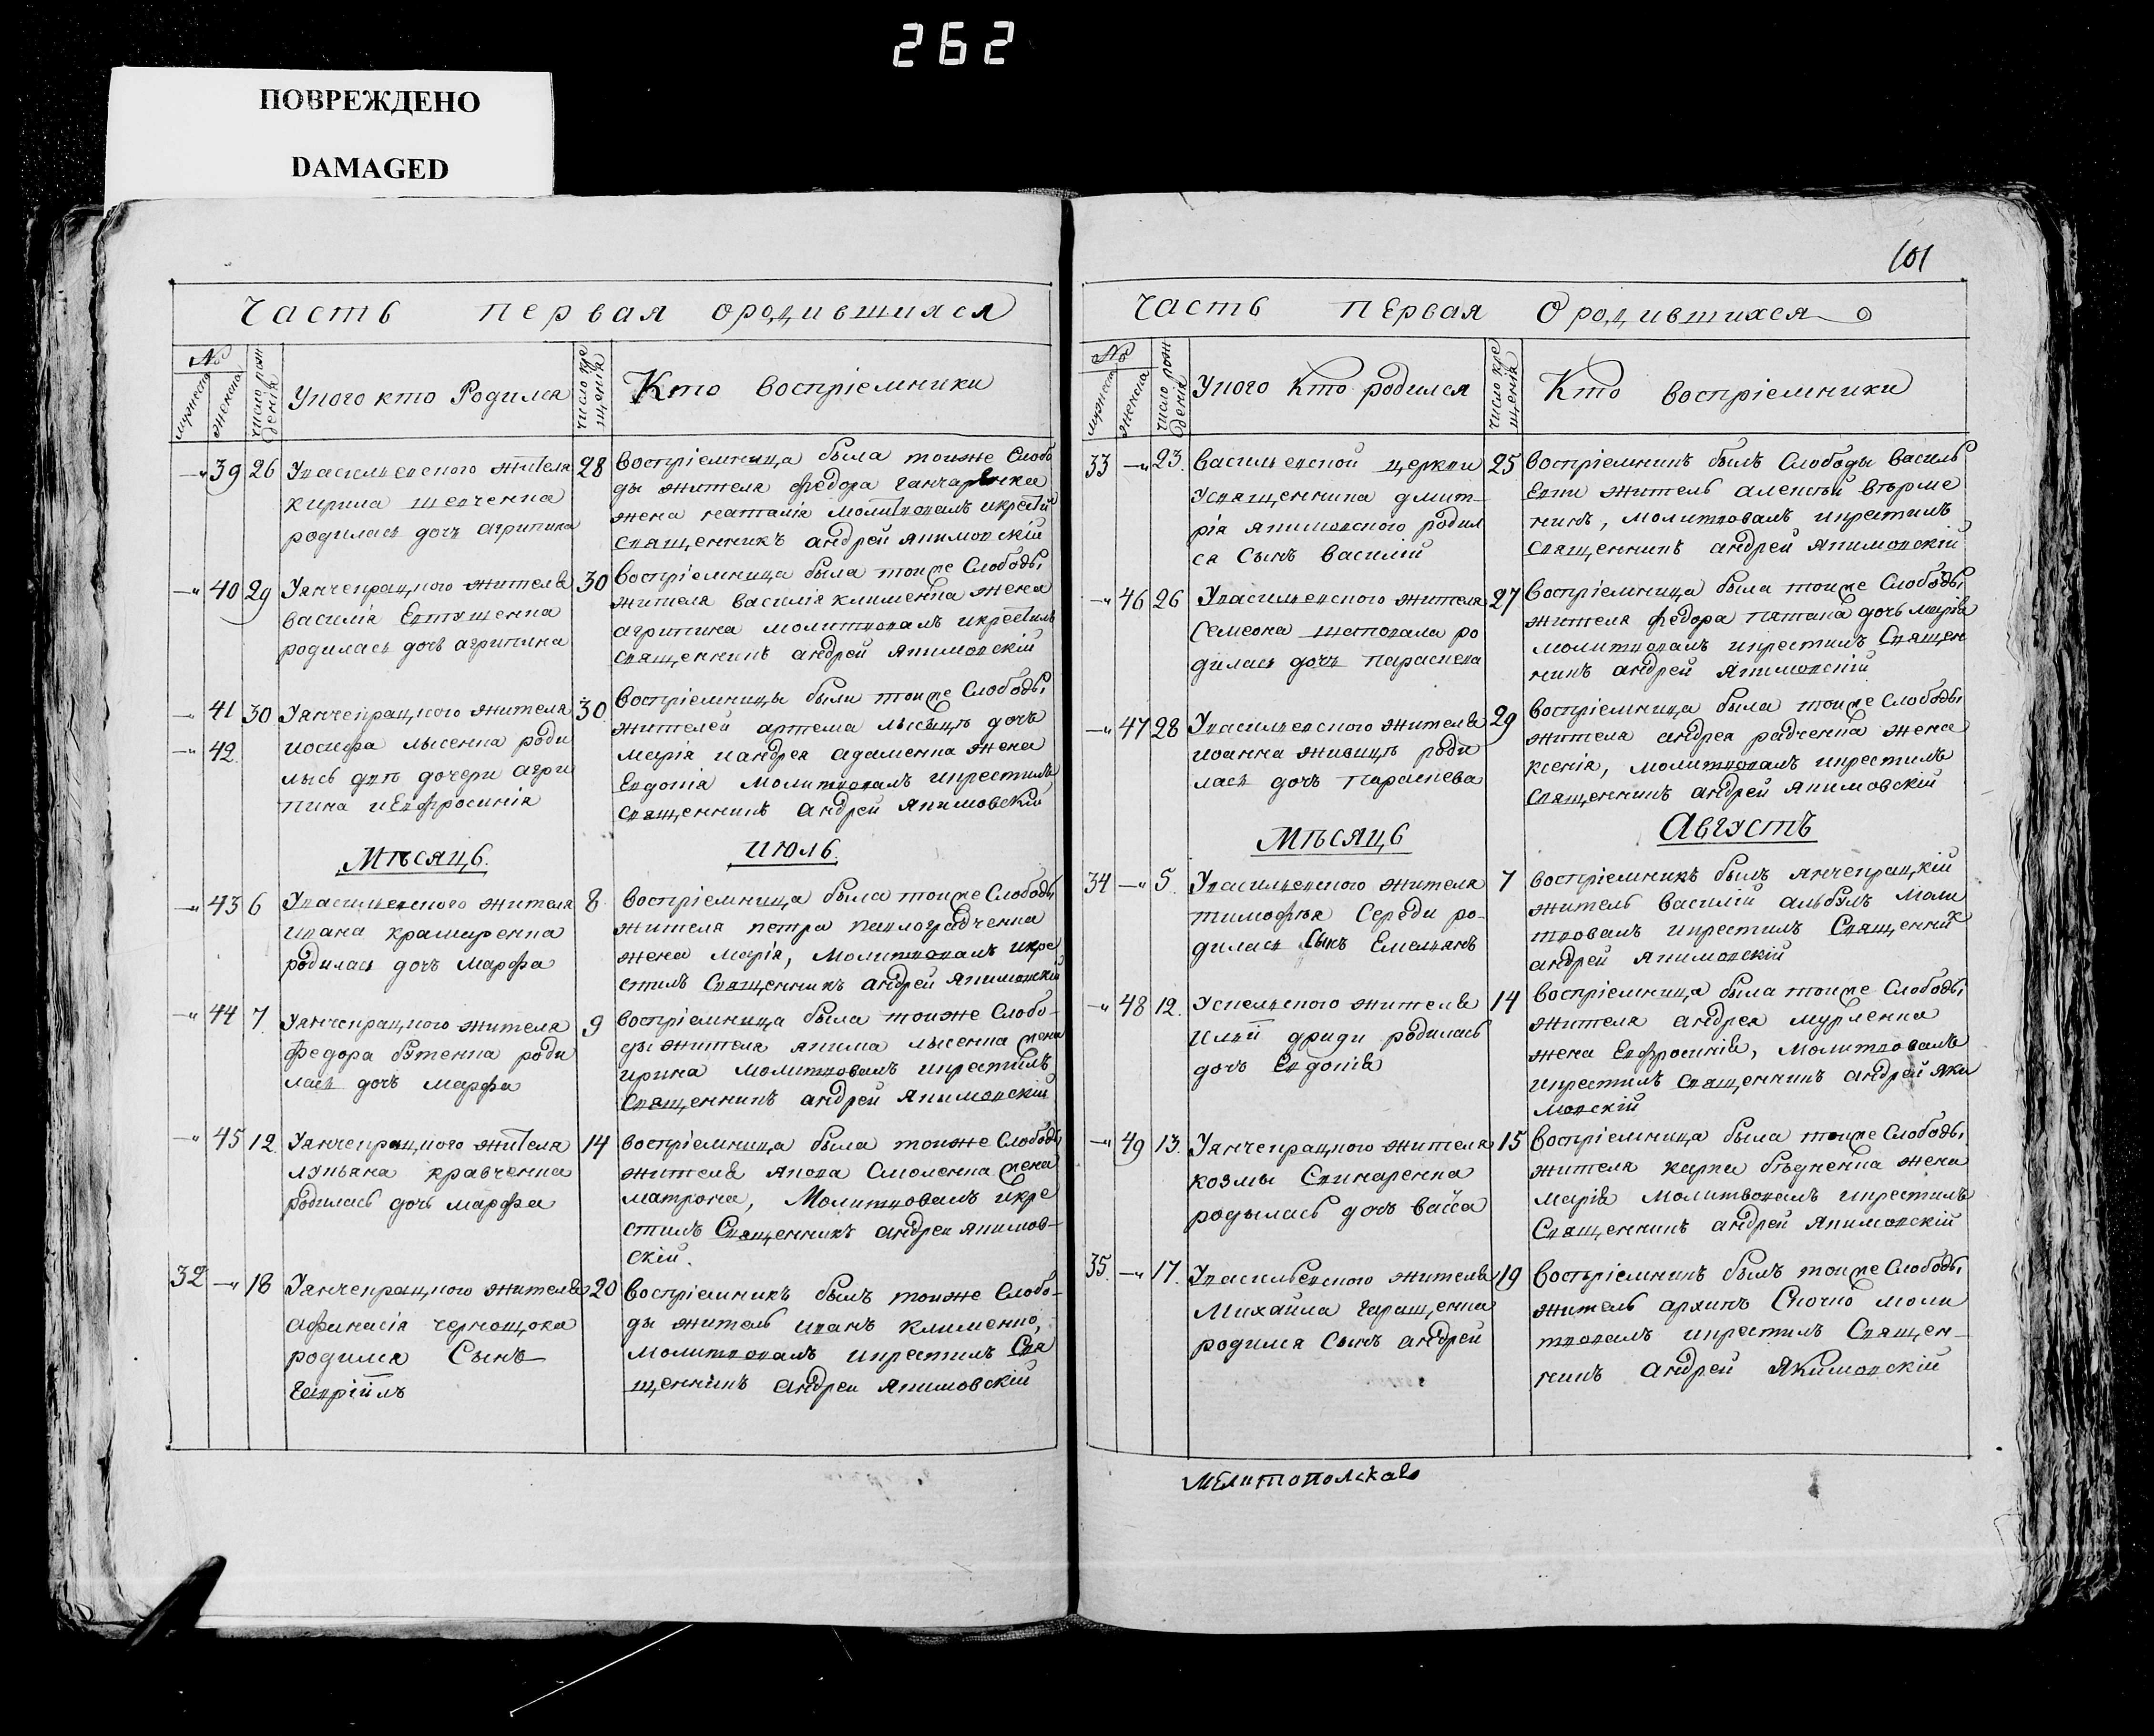 262
ПОВРЕЖДЕНО
DAMAGED
101
Часть первая ородившихся
№
мужеска
женска
число рож
денія
Укого кто Родился
число кре
щенія
Кто воспріемники
39 26 Увасильевского жителя
кирила шевченка
родилась дочь агрипина
28 воспріемница была тоиже Слобо
ды жителя федора ганчаренка
жена наталія молитвовалъ икрестил
священникъ андрей якимовскій
40 29 Уянчекрацкого жителя
василія Евтушенка
родилась дочь агрипина
30 воспріемница была тоиже Слободы
жителя василія клименка жена
агрипина молитвовалъ икрестилъ
священникъ андрей якимовскій
41 30 Уянчекрацкого жителя
42 иосифа лысенка роди
лысь двѣ дочери агри
пина иЕвфросинія
30 воспріемницы были тоиже Слободы
жителей артема лысъцѣ дочь
марія иандрея адаменка жена
Евдокія молитвовалъ икрестилъ
священникъ андрей якимовскій
Мѣсяцъ июль
43 6 Увасильевского жителя
ивана крамаренка
родилась дочь марфа
8 воспріемница была тоиже Слободы
жителя петра павлоградченка
жена марія, молитвовалъ икре
стилъ Священникъ андрей якимовскій
44 7 Уянчекрацкого жителя
федора бутенка роди
лась дочь марфа
9 воспріемница была тоиже Слобо-
ды жителя якима лысенка жена
ирина молитвовалъ икрестилъ
Священникъ андрей якимовскій
45 12 Уянчекрацкого жителя
лукьяна кравченка
родилась дочь марфа
14 воспріемница была тоиже Слободы
жителя якова Смоленка жена
матрона, молитвовалъ икре
стилъ Священникъ андрей якимов-
скій.
32 18 Уянчекрацкого жителя
афанасія чернощока
родился Сынъ
Гавріилъ
20 воспріемникъ былъ тоиже Слобо-
ды житель иванъ клименко,
молитвовалъ икрестилъ Свя
щенникъ андрей якимовскій
Часть первая Ородившихся
№
мужеска
женска
число рож
денія
Укого кто родился
число кре
щенія
Кто воспріемники
33 23. васильевской церкви
Усвященника дмит-
рія якимовского родил
ся Сынъ василій
25 воспріемникъ былъ Слободы василь
Евки житель алексѣй вѣрме
никъ, молитвовалъ икрестилъ
священникъ андрей якимовскій
46 26 Увасильевского жителя
Семеона шаповала ро
дилась дочь параскева
27 воспріемница была тоиже Слободы
жителя федора пятака дочь марія
молитвовалъ икрестилъ Священ
никъ андрей якимовскій
47 28 Увасильевского жителя
иоанна живицѣ роди
лась дочь параскева
29 воспріемница была тоиже Слободы
жителя андрея радченка жена
ксенія, молитвовалъ икрестилъ
священникъ андрей якимовскій
Мѣсяцъ Августъ
34 5. Увасильевского жителя
тимофѣя Середи ро-
дилась Сынъ Емельянъ
7 воспріемникъ былъ янчекрацкій
житель василій альбулъ моли
твовалъ икрестилъ Священник
андрей якимовскій
48 12. Успельского жителя
Иліи дриди родилась
дочь Евдокія
14 воспріемница была тоиже Слободы
жителя андрея мурленка
жена Евфросинія, молитвовалъ
икрестилъ священникъ андрей яки
мовскій
49 13. Уянчекрацкого жителя
козмы Свинаренка
родылась дочь васса
15 воспріемница была тоиже Слободы
жителя карпа бѣдненка жена
марія молитвовалъ икрестилъ
Священникъ андрей якимовскій
35. 17. Увасильевского жителя
Михаила гаращенка
родился Сынъ андрей
19 воспріемникъ былъ тоиже Слободы
житель архипъ Скочко моли
твовалъ икрестилъ Священ-
никъ андрей якимовскій
Мелитополскаго